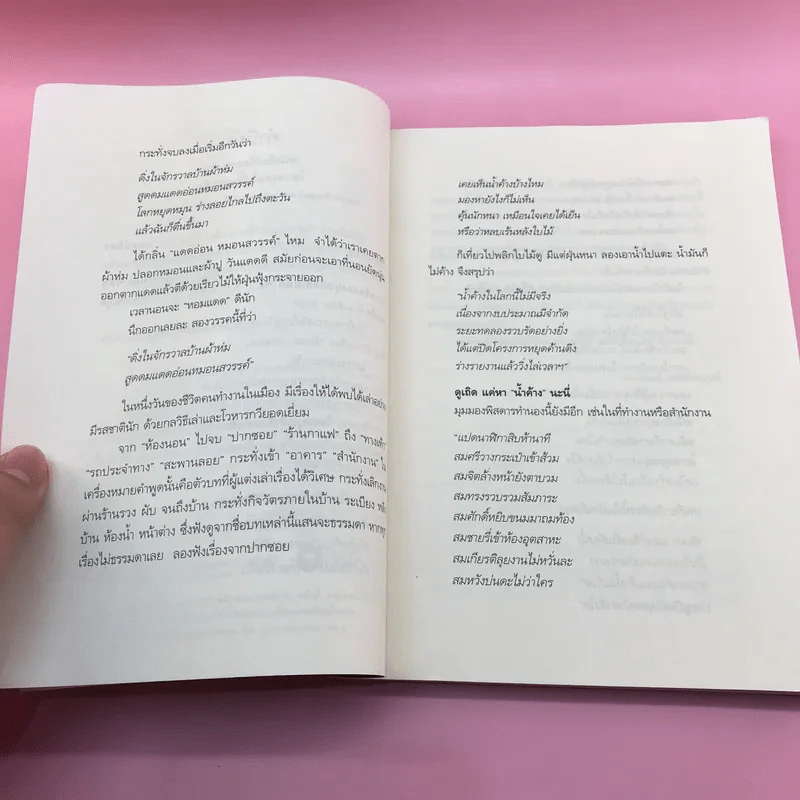 กระทั่งจบลงเมื่อเริ่มอีกวันว่า
ดิ่งในจักรวาลบ้านผ้าห่ม
สูดดมแดดอ่อนหมอนสวรรค์
โลกหยุดหมุน ร่างลอยไกลไปถึงตะวัน
แล้วฉันก็ตื่นขึ้นมา
ได้กลิ่น "แดดอ่อน หมอนสวรรค์" ไหม จำได้ว่าเราเคยตาก
ผ้าห่ม ปลอกหมอนและผ้าปู วันแดดดี สมัยก่อนจะเอาที่นอนยัดนุ่น
ออกตากแดดแล้วตีด้วยเรียวไม้ให้ฝุ่นฟุ้งกระจายออก
เวลานอนจะ "หอมแดด" ดีนัก
นึกออกเลยละ สองวรรคนี้ที่ว่า
"ดิ่งในจักรวาลบ้านผ้าห่ม
สูดดมแดดอ่อนหมอนสวรรค์"
ในหนึ่งวันของชีวิตคนทำงานในเมือง มีเรื่องให้ได้พบได้เล่าอย่าง
มีรสชาตินัก ด้วยกลวิธีเล่าและโวหารกวียอดเยี่ยม
จาก "ห้องนอน" ไปจบ "ปากซอย" "ร้านกาแฟ" ถึง "ทางเท้า"
"รถประจำทาง" "สะพานลอย" กระทั่งเข้า "อาคาร" "สำนักงาน" ใน
เครื่องหมายคำพูดนั้นคือตัวบทที่ผู้แต่งเล่าเรื่องได้วิเศษ กระทั่งเลิกงาน
ผ่านร้านรวง ผับ จนถึงบ้าน กระทั่งกิจวัตรภายในบ้าน ระเบียง หลัง
บ้าน ห้องน้ำ หน้าต่าง ซึ่งฟังดูจากชื่อบทเหล่านี้แสนจะธรรมดา หากทุก
เรื่องไม่ธรรมดาเลย ลองฟังเรื่องจากปากซอย
เคยเห็นน้ำค้างบ้างไหม
มองหายังไงก็ไม่เห็น
คุ้นนักหนา เหมือนใจเคยได้เย็น
หรือว่าหลบเร้นหลังใบไม้
ก็เที่ยวไปพลิกใบไม้ดู มีแต่ฝุ่นหนา ลองเอาน้ำไปแตะ น้ำมันก็
ไม่ค้าง จึงสรุปว่า
"น้ำค้างในโลกนี้ไม่มีจริง
เนื่องจากงบประมาณมีจำกัด
ระยะทดลองรวบรัดอย่างยิ่ง
ได้แต่ปิดโครงการหยุดค้านติง
ร่างรายงานแล้ววิ่งไล่เวลาฯ"
ดูเถิด แค่หา "น้ำค้าง" นะนี่
มุมมองพิสดารทำนองนี้ยังมีอีก เช่นในที่ทำงานหรือสำนักงาน
"แปดนาฬิกาสิบห้านาที
สมศรีวางกระเป๋าเข้าส้วม
สมจิตล้างหน้ายังตาบวม
สมทรงรวบรวมสัมภาระ
สมศักดิ์หยิบขนมมาถมท้อง
สมชายรี่เข้าห้องอุตสาหะ
สมเกียรติลุยงานไม่หวั่นละ
สมหวังบ่นดะไม่ว่าใคร